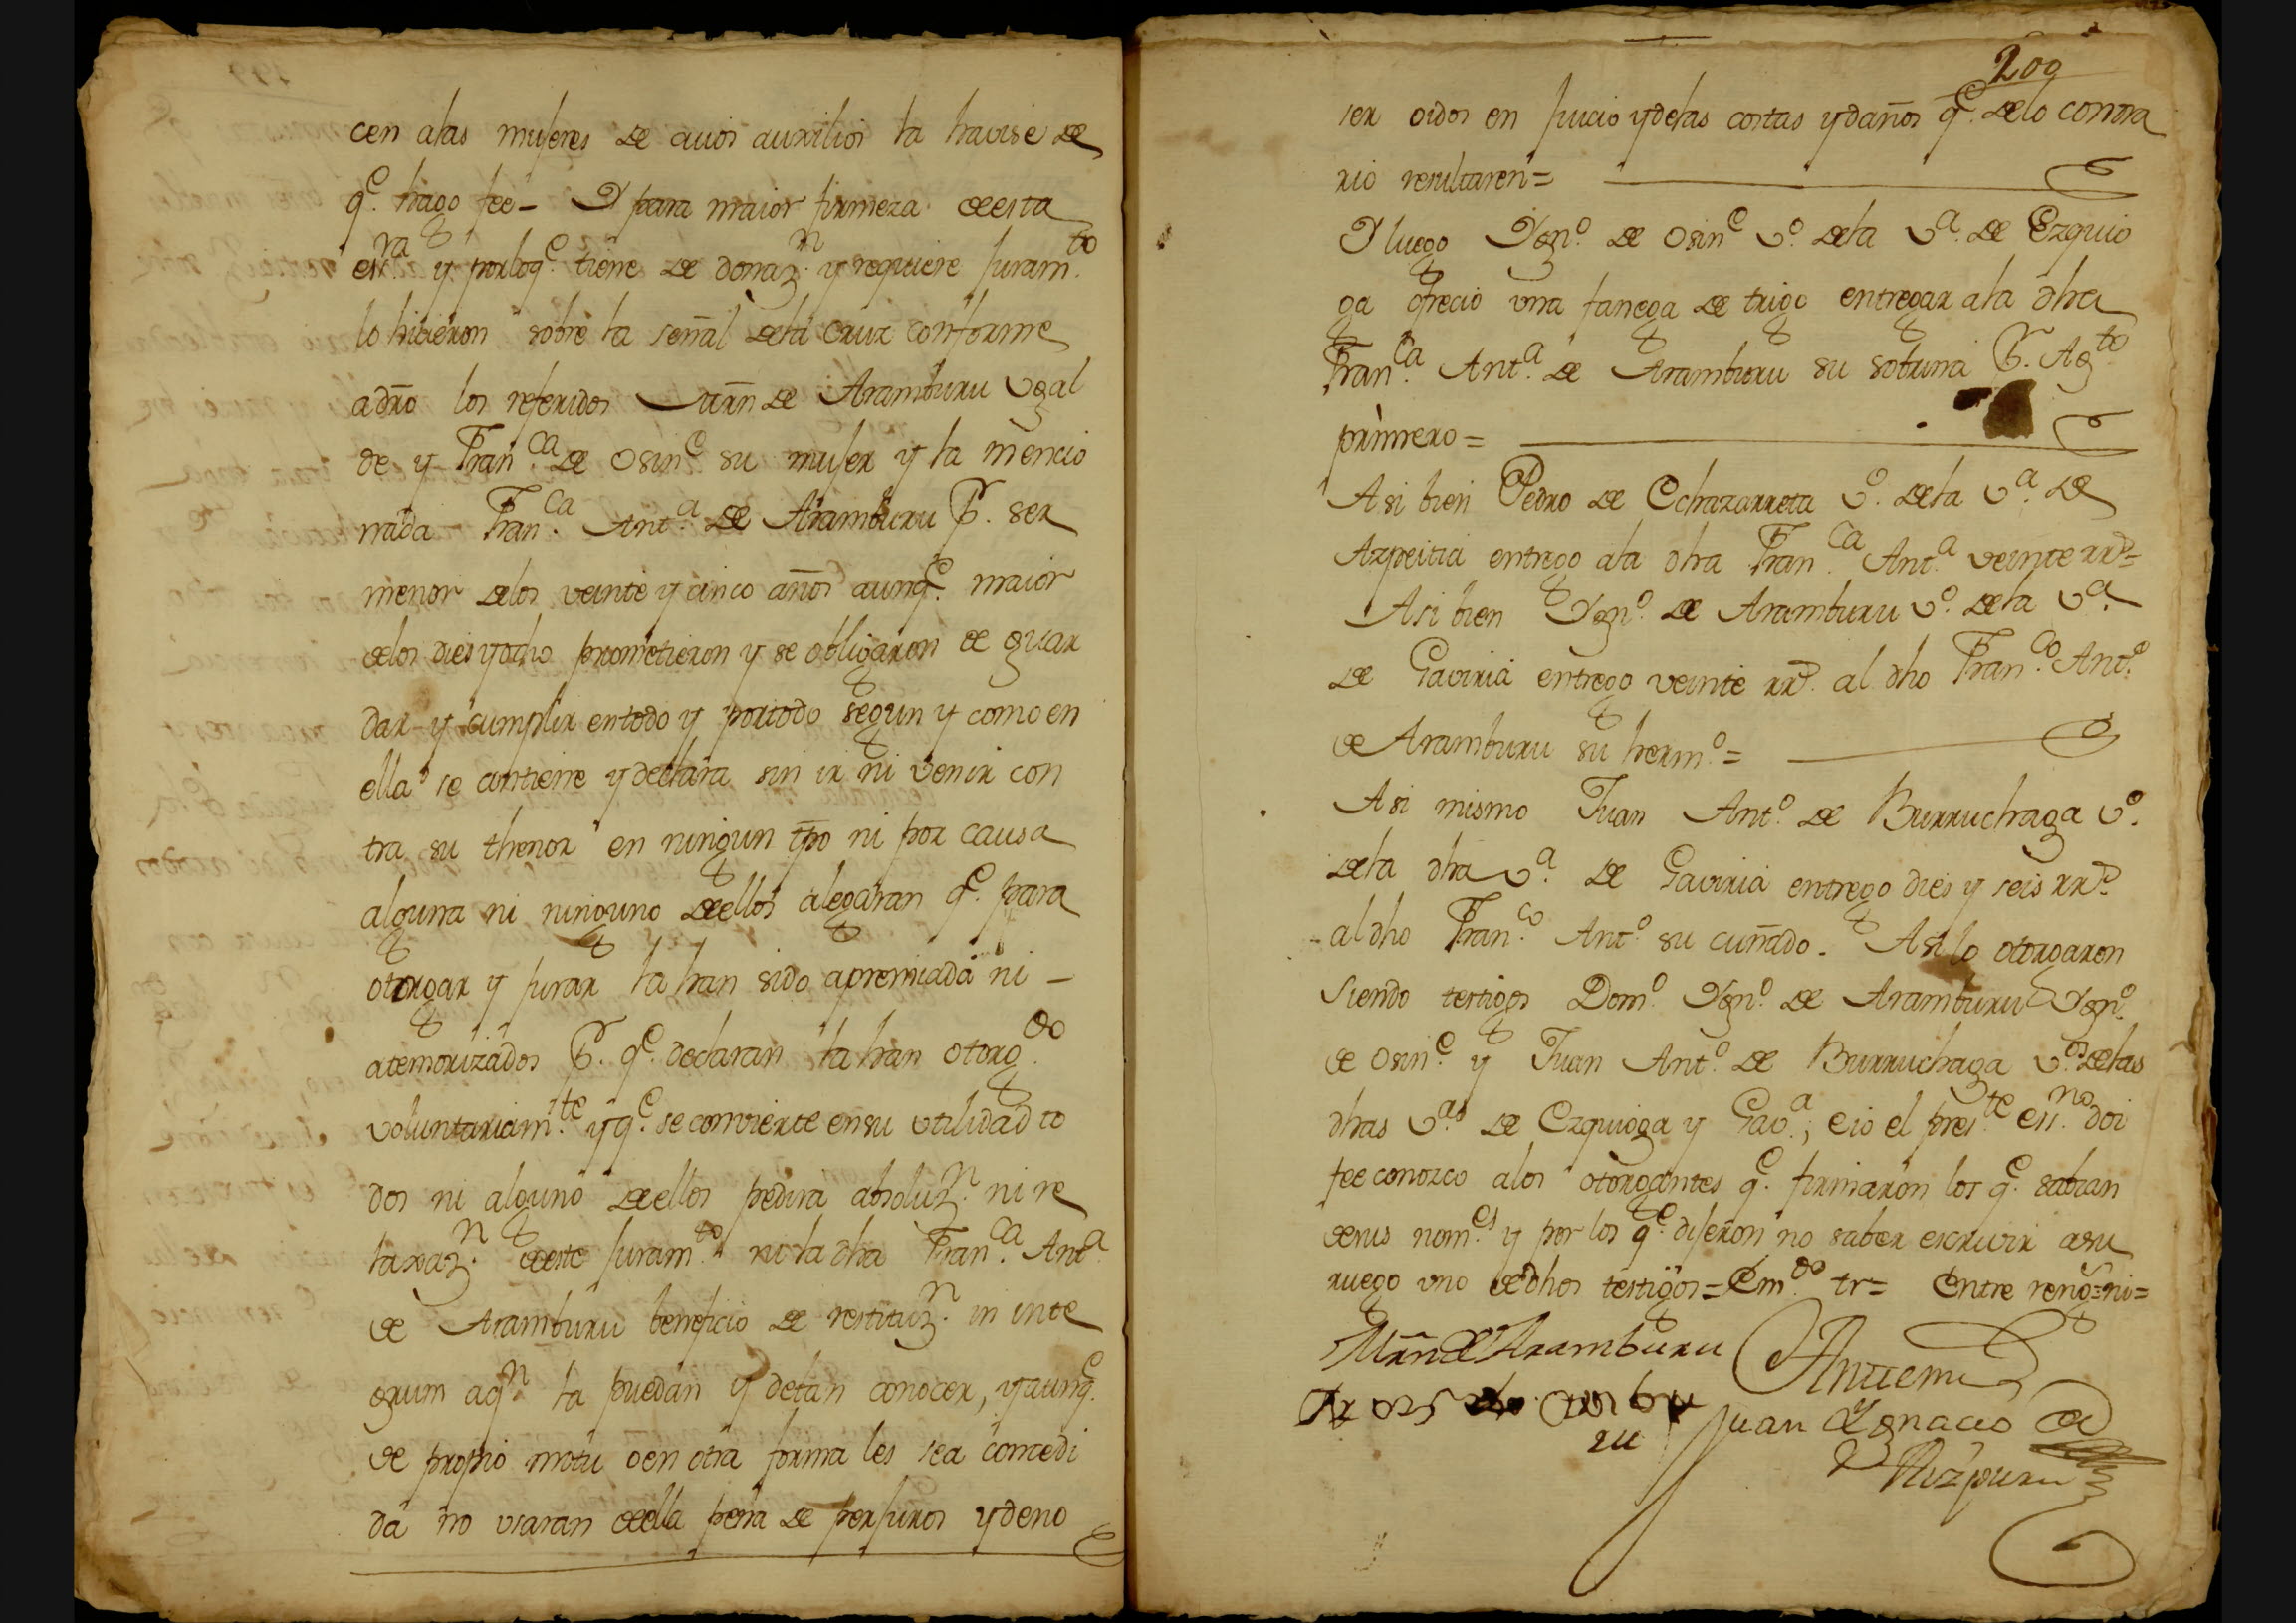 cen alas mujeres de cuios auxilios la havise de
q.e hago fee - Y para maior firmeza de esta
esr.ra y por loq.e tiene de donaz.n y requiere juram.to
lo hicieron sobre la señal dela cruz conforme
adr̃o los referidos Mrñ de Aramburu Ugal
de y Fran.ca de Osin.e su mujer y la mencio
nada Fran.ca Ant.a de Aramburu P.r ser
menor delos veinte y cinco años aunq.e maior
delos diesyocho prometieron y se obligaron de guar
dar y cumplir entodo y portodo segun y como en
ella se contiene y declara sin ir ni venir con
tra su thenor en ningun tp̃o ni por causa
alguna ni ninguno deellos alegaran q.e para
otorgar y jurar la han sido apremiada ni -
atemorizados P.r q.e declaran la han otorg.do
voluntariam.te yq.e se convierte ensu utilidad to
dos ni alguno deellos pedira absoluz.n ni re
laxaz.n deeste juram.to ni la dha Fran.ca Ant.a
de Aramburu beneficio de restituz.n in inte
grum aq.n la puedan y devan conocer, yaunq.e
de propio motu oen otra forma les sea concedi
da no usaran deella pena de perjuros ydeno
200
ser oidos en juicio ydelas costas ydaños q.e delo contra
rio resultaren=
Y luego Ygn.o de Osin.e v.o dela v.a de Ezquio
ga ofrecio una fanega de trigo entregar ala dha
Fran.ca Ant.a de Aramburu su sobrina P.r Ag.to
primero=
Asi bien Pedro de Echazarreta v.o dela v.a de
Azpeitia entrego ala dha Fran.ca Ant.a veinte rr.s=
Asi bien Ygn.o de Aramburu v.o dela v.a
de Gaviria entrego veinte rr.s al dho Fran.co Ant.o
de Aramburu su herm.o=
Asi mismo Juan Ant.o de Burruchaga v.o
dela dha v.a de Gaviria entrego dies y seis rr.s
al dho Fran.co Ant.o su cuñado. Asilo otorgaron
Siendo testigos Dom.o Ygn.o de Aramburu Ygn.o
de Osin.e y Juan Ant.o de Burruchaga v.os delas
dhas v.as de Ezquioga y Gav.a; eio el pres.te ess.no doi
fee conozco alos otorgantes q.e firmaron los q.e sabian
desus nom.es y por los q.e dijeron no saber escrivir asu
ruego uno dedhos testigos = Em.do tr= Entre reng.s=ni=
Mrñ de Aramburu
Antemi
ru
Juan Ygnacio de
Aizpuru